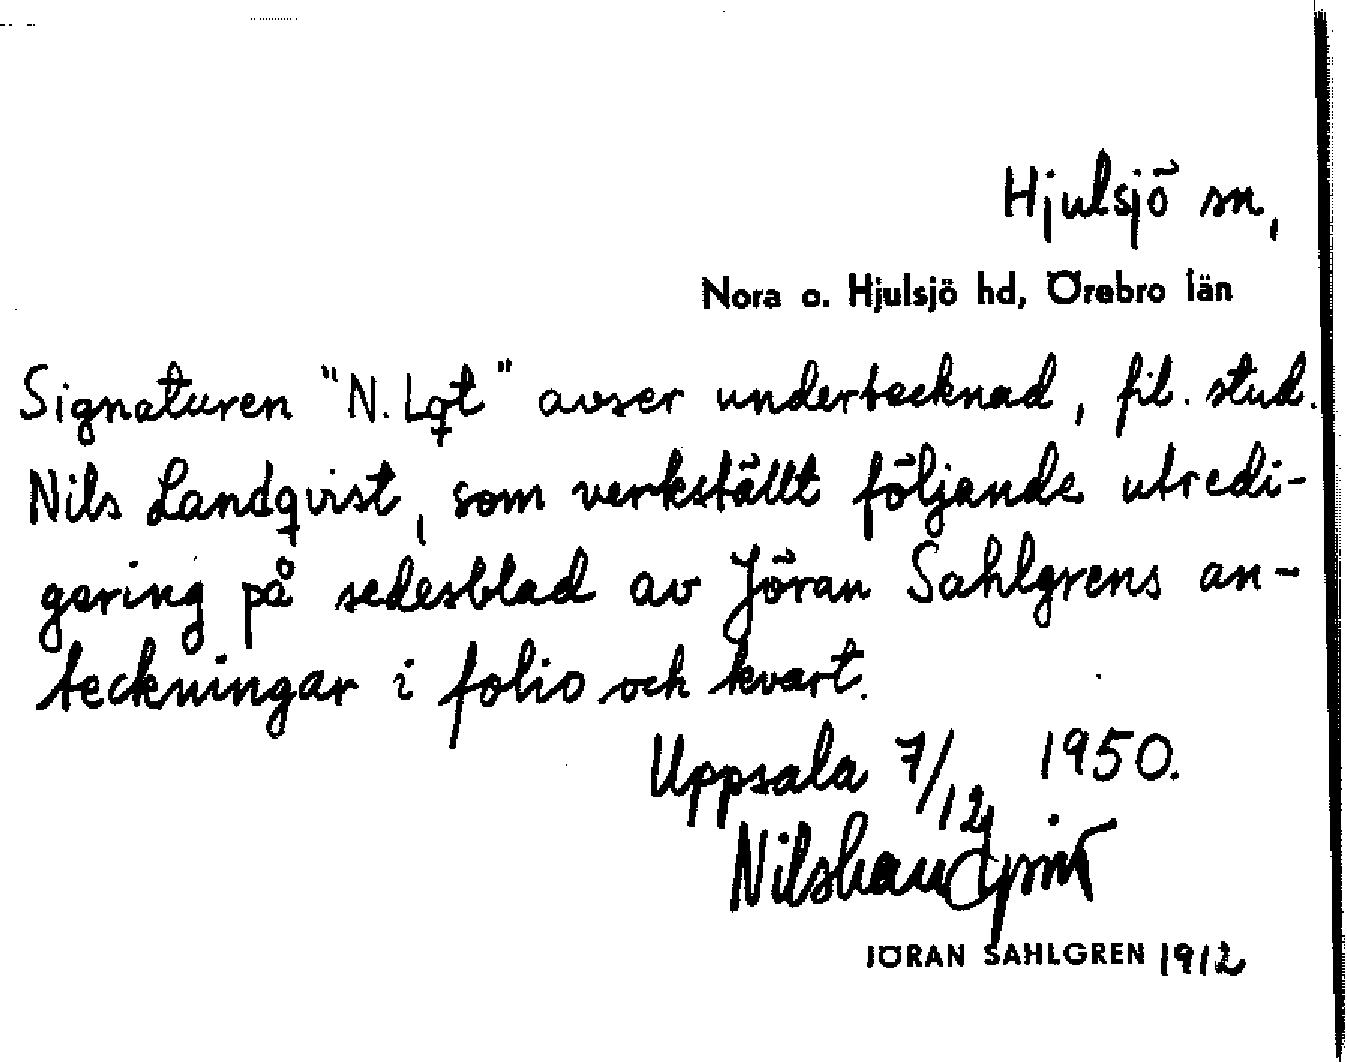 Hjulsjö sn,
Nora o. Hjulsjö hd, Örebro län
Signaturen "N. Lqt" avser undertecknad, fil. stud.
Nils Landqvist, som verkställt följande utredi-
gering på sedesblad av Jöran Sahlgrens an-
teckningar i folio och kvart.
Uppsala 7/12 1950.
Nils Landqvist
JÖRAN SAHLGREN 1912